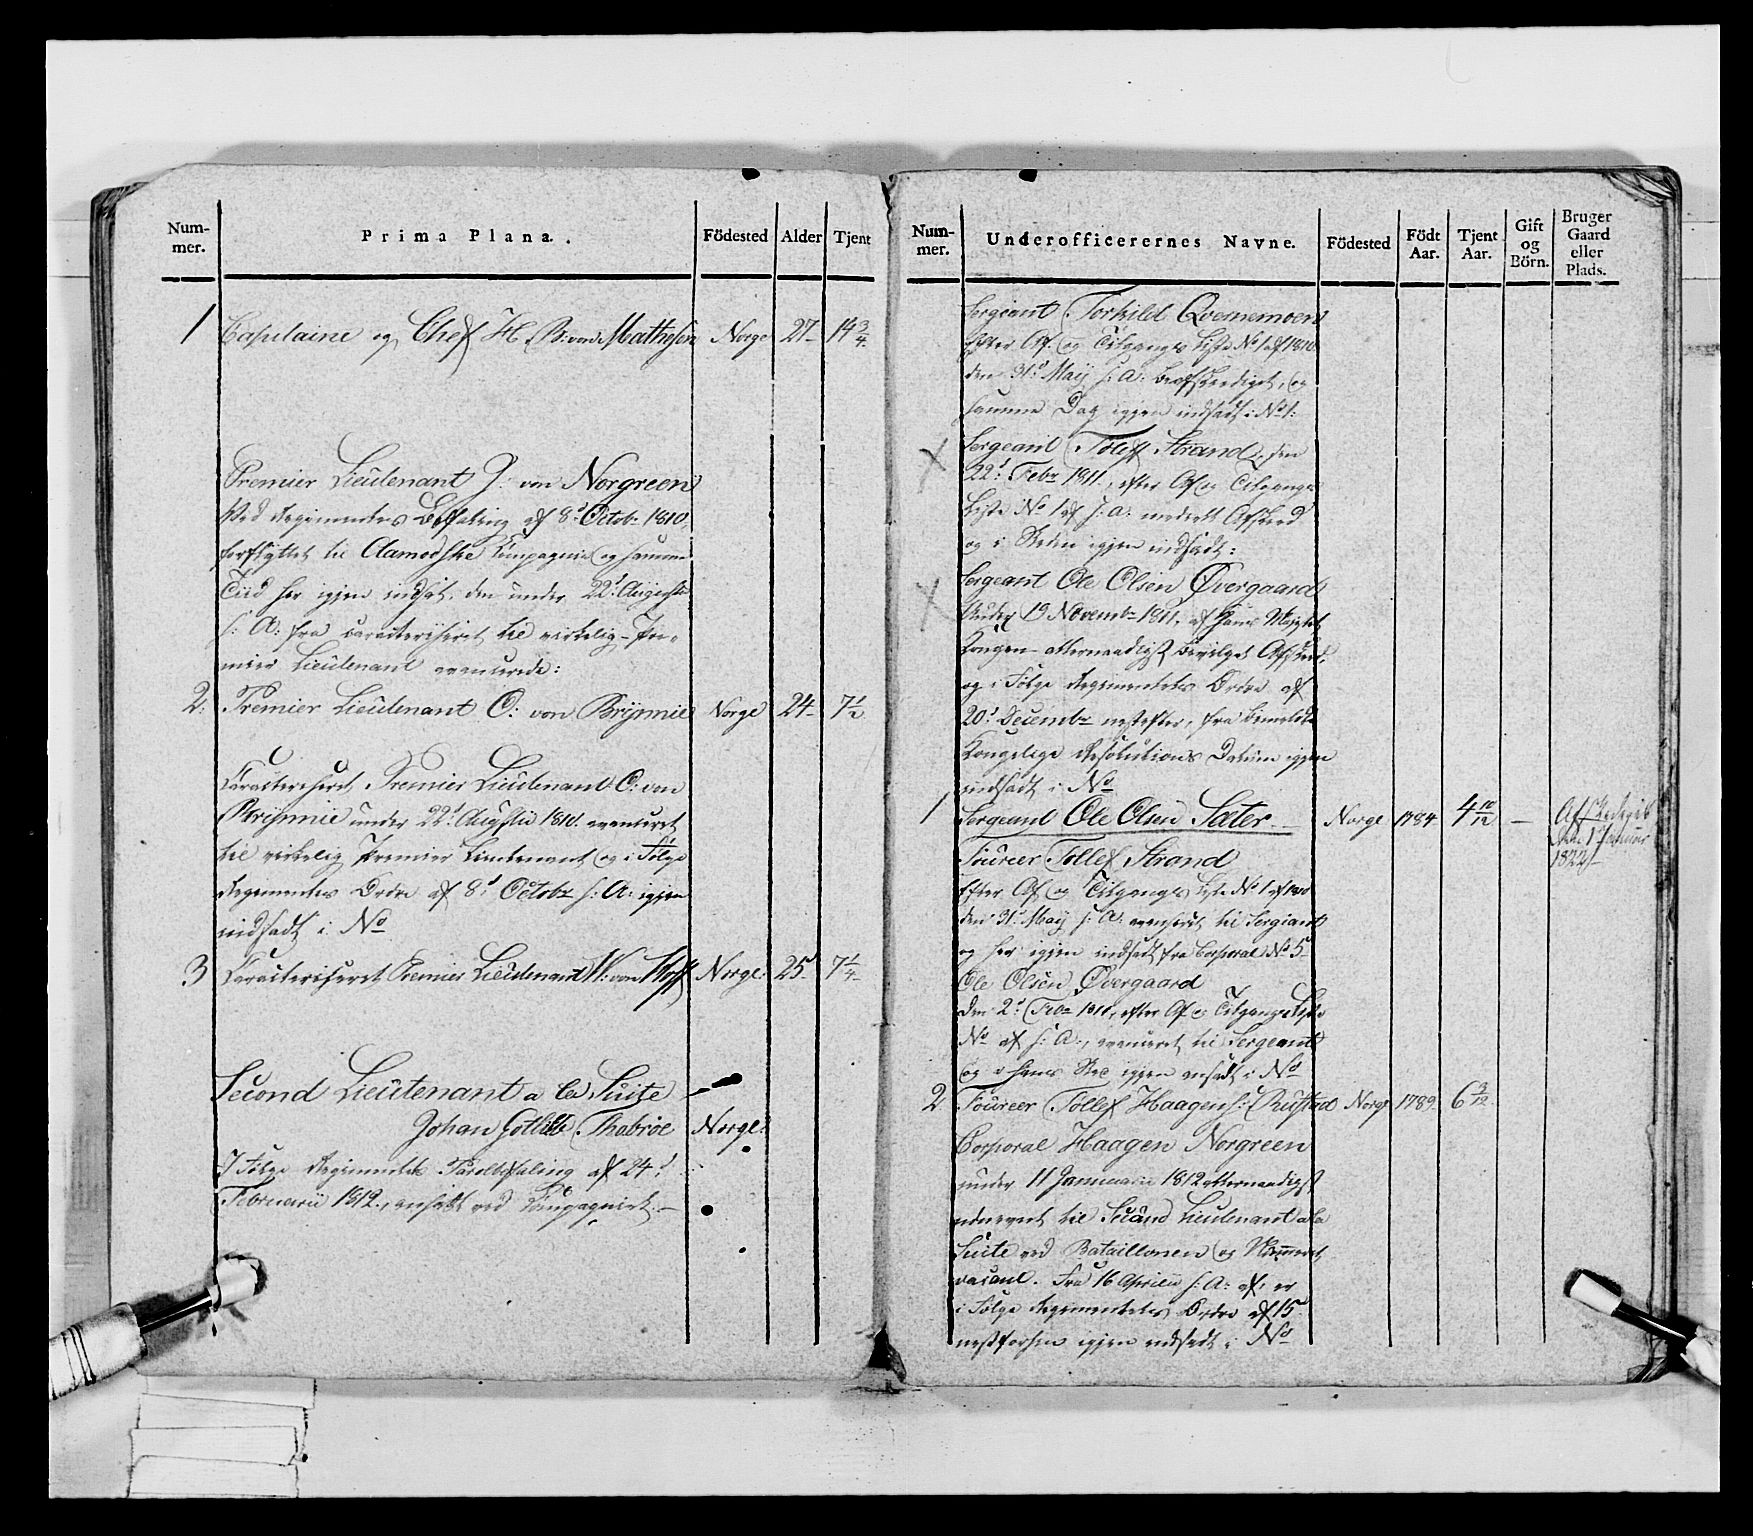 Num-
mer.
Prima Plana.
Födested
Alder
Tjent
1
Capitaine og Chef H. B: von Mathesen Norge 27 14 3/4
Premier Lieutenant J: von Norgreen
Ved Regimentets Befaling af 8d Octobr 1810,
forflyttet til Compagnie og samme
Tiid her igjen indsat, den under 22d Augusti
s: A: fra caracteriseret til virkelig Pre-
mier Lieutenant avancerede:
2. Premier Lieutenant O: von Brynnie Norge 24 7 1/2
Caracteriseret Premier Lieutenant O: von
Brynnie under 22d Augustii 1810. avanceret
til virkelig Premier Lieutenant og i Følge
Regimentets Ordre af 8d Octobr s: A: igjen
indsadt i No
3 Caracteriseret Premier Lieutenant von Norge 25 7 1/4
Second Lieutenant a la Suite
Johan Gotlieb Thobroe Norge
I Følge Regimentets Parolbefaling af 24d
Februarii 1812, ansadt ved Compagniet.
Num-
mer.
Underofficerernes Navne.
Födested
Födt
Aar.
Tjent
Aar.
Gift
og
Börn.
Bruger
Gaard
eller
Plads.
Sergeant Torkild Qvernemoen
efter Af og Tilgangs Liste No 1 af 1810
den 31d Maij s: A: beafskediget, og
samme Dag igjen indsadt i No 1:
Sergeant Tolef Strand, den
22d Febr 1811, efter Af og Tilgangs
Liste No 1 af s: a: meddelt Afskeed
og i Steden igjen indsadt:
Sergeant Ole Olsen Øvergaard
Under 19 Novembr 1811, af Hans Majestet
Kongen allernaadigst bevilget Afskeed,
og i Følge Regimentets Ordre af
20d Decembr nestefter, fra bemeldte
Kongelige Resolutions Datum igjen
indsadt i No
1 Sergeant Ole Olsen Sæter Norge 1784 4 10/12 — Afskediget
den 1 Januar
1822
Foureer Tollef Strand
Efter Af og Tilgangs Liste No 1 af 1810
den 31d Maij s: A: avanceret til Sergiant
og her igjen indsadt fra Corporal No 5
Ole Olsen Øvergaard
den 2d efter Af og Tilgangs Liste
No af s: A:, avanceret til Sergeant
og i hans Sted igjen ansadt i No
2 Foureer Tollef Haagens: Rustad Norge 1789 6 3/12
Corporal Haagen Norgreen
under 11 Januarii 1812 allernaadigst
udnevnt til Second Lieutenant ala
Suite ved Bataillonen og Nummeret
vacant. Fra 16 Aprilii s: A: af, er
i Følge Regimentets Ordre af 15
nestforhen igjen indsadt i No